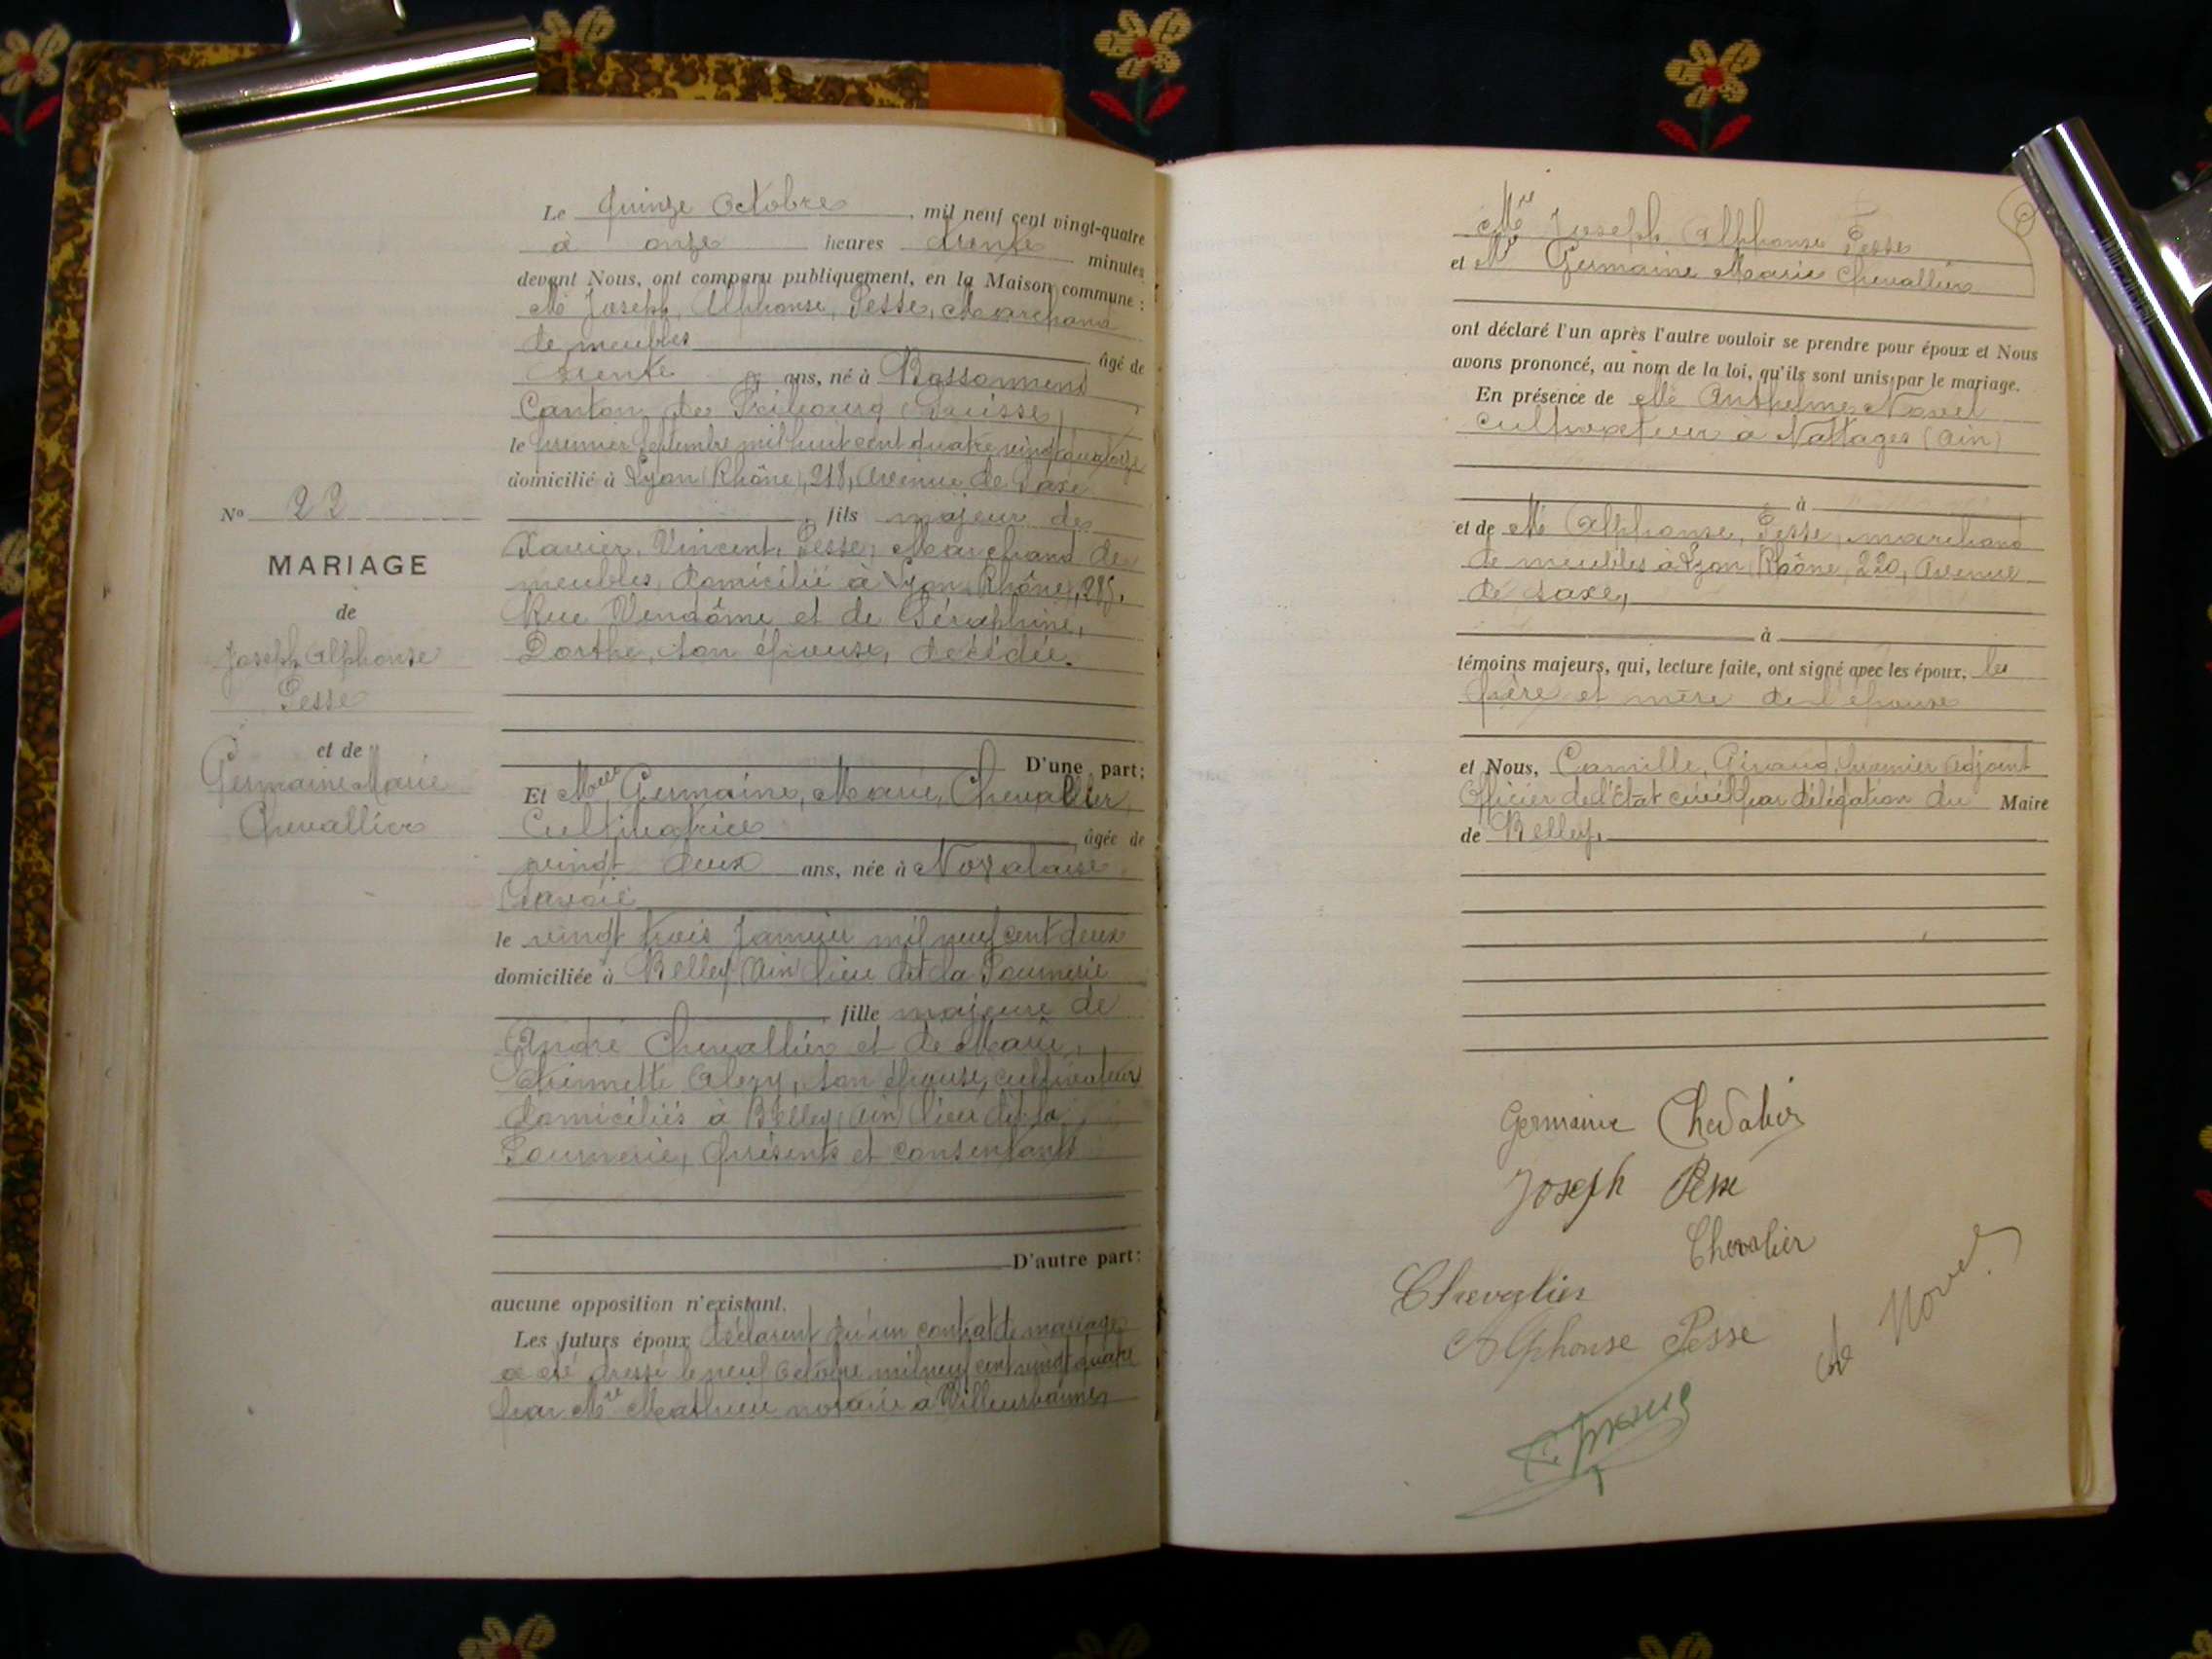 Le quinze Octobre, mil neuf cent vingt-quatre
à onze heures trente minutes
devant Nous, ont comparu publiquement, en la Maison commune :
Mr Joseph, Alphonse, Pesse, Marchand
de meubles âgé de
trente ans, né à Bossonnens
Canton de Fribourg (Suisse)
le premier Septembre mil huit cent quatre vingt quatorze
domicilié à Lyon (Rhône), 218, Avenue de Saxe
, fils majeur de
Xavier, Vincent, Pesse, Marchand de
meubles, domicilié à Lyon (Rhône), 285,
Rue Vendôme et de Séraphine,
Dorthe, son épouse, décédée.
D'une part;
Et Melle Germaine, Marie, Chevallier,
Cultivatrice, âgée de
vingt deux ans, née à Novalaise
Savoie
le vingt trois Janvier mil neuf cent deux
domiciliée à Belley (Ain) lieu dit la
, fille majeure de
André Chevallier et de Marie,
son épouse, cultivateurs
domiciliés à Belley (Ain) lieu dit la
présents et consentants
D'autre part:
aucune opposition n'existant.
Les futurs époux déclarent qu'un contrat de mariage
a été dressé le neuf Octobre mil neuf cent vingt quatre
par Mre Mathieu notaire à Villeurbanne,
No 22
MARIAGE
de
Joseph Alphonse
Pesse
et de
Germaine Marie
Chevallier
Mr Joseph Alphonse Pesse
et Germaine Marie Chevallier
ont déclaré l'un après l'autre vouloir se prendre pour époux et Nous
avons prononcé, au nom de la loi, qu'ils sont unis par le mariage.
En présence de Mr Anthelme Novel
cultivateur à Nattages (Ain)
à
et de Mr Alphonse, Pesse, marchand
de meubles à Lyon (Rhône) 220, Avenue
de Saxe,
à
témoins majeurs, qui, lecture faite, ont signé avec les époux, les
père et mère de l'épouse
et Nous, Camille, Giraud, premier adjoint
Officier de l'Etat civil par délégation du Maire
de Belley.
Germaine Chevalier
Joseph Pesse
Chevalier
Chevalier
Alphonse Pesse
Novel